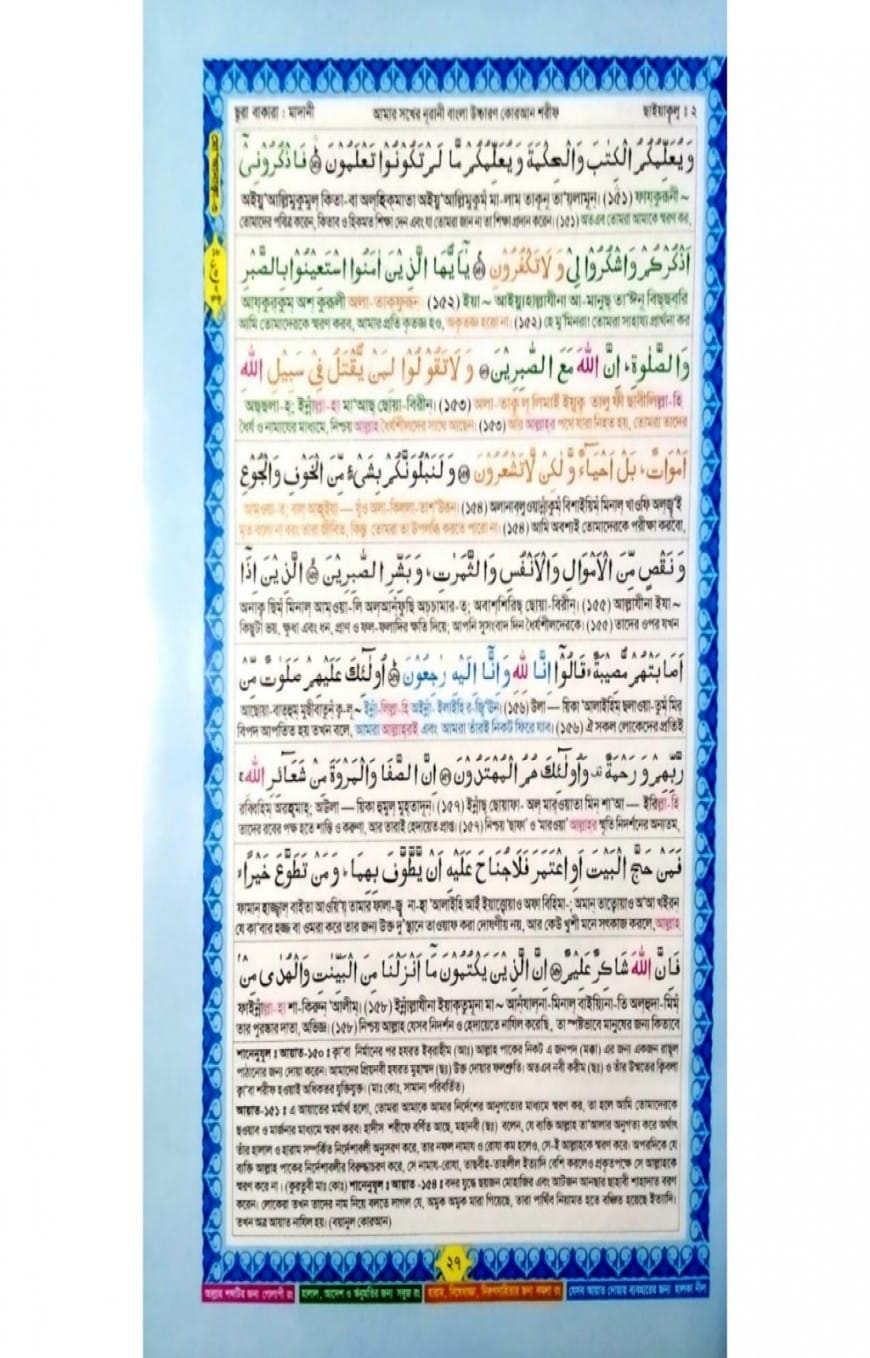 ছুরা বাকারা : মাদানী আমার সখের নূরানী বাংলা উচ্চারণ কোরআন শরীফ ছাইয়াকূলু ঃ ২
وَيُعَلِّمُكُمُ الْكِتٰبَ وَالْحِكْمَةَ وَيُعَلِّمُكُمْ مَّا لَمْ تَكُوْنُوْا تَعْلَمُوْنَ ۝ فَاذْكُرُوْنِيْٓ
অইয়ু'আল্লিমুকুমুল্ কিতা-বা অল্হিকমাতা অইয়ু'আল্লিমুকুম্ মা-লাম তাকূনূ তা'য়লামূন্। (১৫১) ফায্কুরূনী ~
তোমাদের পবিত্র করেন, কিতাব ও হিকমত শিক্ষা দেন এবং যা তোমরা জান না তা শিক্ষা প্রদান করেন। (১৫১) অতএব তোমরা আমাকে স্মরণ কর,
اَذْكُرْكُمْ وَاشْكُرُوْا لِيْ وَلَا تَكْفُرُوْنِ ۝ يٰٓاَيُّهَا الَّذِيْنَ اٰمَنُوا اسْتَعِيْنُوْا بِالصَّبْرِ
আয্কুর্কুম্ অশ্ কুরূলী অলা-তাক্ফুরূন্। (১৫২) ইয়া ~ আইয়্যুহাল্লাযীনা আ-মানুছ্ তা'ঈনূ বিছ্ছব্রি
আমি তোমাদেরকে স্মরণ করব, আমার প্রতি কৃতজ্ঞ হও, অকৃতজ্ঞ হয়ো না। (১৫২) হে মু'মিনরা! তোমরা সাহায্য প্রার্থনা কর
وَالصَّلٰوةِ ؕ اِنَّ اللّٰهَ مَعَ الصّٰبِرِيْنَ ۝ وَلَا تَقُوْلُوْا لِمَنْ يُّقْتَلُ فِيْ سَبِيْلِ اللّٰهِ
অছ্ছলা-হ্; ইন্নাল্লা-হা মা'আছ্ ছোয়া-বিরীন্। (১৫৩) অলা-তাকূ লূ লিমাই ইয়ুক্ব্ তালু ফী ছাবীলিল্লা-হি
ধৈর্য ও নামাযের মাধ্যমে, নিশ্চয় আল্লাহ ধৈর্যশীলদের সাথে আছেন। (১৫৩) আর আল্লাহর পথে যারা নিহত হয়, তোমরা তাদের
اَمْوَاتٌ ؕ بَلْ اَحْيَآءٌ وَّلٰكِنْ لَّا تَشْعُرُوْنَ ۝ وَلَنَبْلُوَنَّكُمْ بِشَيْءٍ مِّنَ الْخَوْفِ وَالْجُوْعِ
আমওয়া-ত্; বাল্ আহ্ইয়া — য়ুঁও অলা-কিল্লা-তাশ্'উরূন। (১৫৪) অলানাব্লুওয়ান্নাকুম্ বিশাইয়িম্ মিনাল্ খাওফি অল্জূ'ই
মৃত বলো না বরং তারা জীবিত, কিন্তু তোমরা তা উপলব্ধি করতে পারো না। (১৫৪) আমি অবশ্যই তোমাদেরকে পরীক্ষা করবো,
وَنَقْصٍ مِّنَ الْاَمْوَالِ وَالْاَنْفُسِ وَالثَّمَرٰتِ ؕ وَبَشِّرِ الصّٰبِرِيْنَ ۝ الَّذِيْنَ اِذَآ
অনাক্ব্ ছিম্ মিনাল্ আম্ওয়া-লি অল্আন্ফুছি অচ্চামার-ত্; অবাশ্শিরিছ্ ছোয়া-বিরীন্। (১৫৫) আল্লাযীনা ইযা ~
কিছুটা ভয়, ক্ষুধা এবং ধন, প্রাণ ও ফল-ফলাদির ক্ষতি দিয়ে; আপনি সুসংবাদ দিন ধৈর্যশীলদেরকে। (১৫৫) তাদের ওপর যখন
اَصَابَتْهُمْ مُّصِيْبَةٌ ۙ قَالُوْٓا اِنَّا لِلّٰهِ وَاِنَّآ اِلَيْهِ رٰجِعُوْنَ ۝ اُولٰٓئِكَ عَلَيْهِمْ صَلَوٰتٌ مِّنْ
আছোয়া-বাত্হুম্ মুছীবাতুন্ ক্ব-লূ ~ ইন্না-লিল্লা-হি অইন্না- ইলাইহি র-জ্বি'ঊন্। (১৫৬) উলা — য়িকা 'আলাইহিম্ ছলাওয়া-তুম্ মির্
বিপদ আপতিত হয় তখন বলে, আমরা আল্লাহরই এবং আমরা তাঁরই নিকট ফিরে যাব। (১৫৬) ঐ সকল লোকেদের প্রতিই
رَّبِّهِمْ وَرَحْمَةٌ ۟ وَاُولٰٓئِكَ هُمُ الْمُهْتَدُوْنَ ۝ اِنَّ الصَّفَا وَالْمَرْوَةَ مِنْ شَعَآئِرِ اللّٰهِ ۚ
রব্বিহিম্ অরহ্মাহ্; অউলা — য়িকা হুমুল্ মুহ্তাদূন্। (১৫৭) ইন্নাছ্ ছোয়াফা- অল্ মার্ওয়াতা মিন্ শা'আ — ইরিল্লা-হি
তাদের রবের পক্ষ হতে শান্তি ও করুণা, আর তারাই হেদায়েত প্রাপ্ত। (১৫৭) নিশ্চয় 'ছাফা' ও 'মারওয়া' আল্লাহর স্মৃতি নিদর্শনের অন্যতম,
فَمَنْ حَجَّ الْبَيْتَ اَوِ اعْتَمَرَ فَلَا جُنَاحَ عَلَيْهِ اَنْ يَّطَّوَّفَ بِهِمَا ؕ وَمَنْ تَطَوَّعَ خَيْرًا ۙ
ফামান্ হাজ্জ্বাল্ বাইতা আওয়ি'য়্ তামার ফালা-জ্বু না-হা 'আলাইহি আইঁ ইয়াত্ত্বোয়াও অফা বিহিমা-; অমান্ তাত্বোয়াও অ'আ খইরন্
যে কা'বার হজ্জ বা ওমরা করে তার জন্য উক্ত দু'স্থানে তাওয়াফ করা দোষণীয় নয়, আর কেউ খুশী মনে সৎকাজ করলে, আল্লাহ
فَاِنَّ اللّٰهَ شَاكِرٌ عَلِيْمٌ ۝ اِنَّ الَّذِيْنَ يَكْتُمُوْنَ مَآ اَنْزَلْنَا مِنَ الْبَيِّنٰتِ وَالْهُدٰى مِنْۢ
ফাইন্নাল্লা-হা শা-কিরুন্ 'আলীম্। (১৫৮) ইন্নাল্লাযীনা ইয়াক্তুমূনা মা ~ আন্যাল্না-মিনাল্ বাইয়্যিনা-তি অল্হুদা-মিম্
তার পুরষ্কার দাতা, অভিজ্ঞ। (১৫৮) নিশ্চয় আল্লাহ যেসব নিদর্শন ও হেদায়েতে নাযিল করেছি, তা স্পষ্টভাবে মানুষের জন্য কিতাবে
শানেনুযূল ঃ আয়াত-১৫০ ঃ ক্বা'বা নির্মানের পর হযরত ইবরাহীম (আঃ) আল্লাহ পাকের নিকট এ জনপদ (মক্কা) এর জন্য একজন রাছুল
পাঠানোর জন্য দোয়া করেন। আমাদের প্রিয়নবী হযরত মুহাম্মদ (ছঃ) উক্ত দোয়ার ফলশ্রুতি। অতএব নবী করীম (ছঃ) ও তাঁর উম্মতের ক্বিবলা
ক্বা'বা শরীফ হওয়াই অধিকতর যুক্তিযুক্ত। (মাঃ কোঃ, সামান্য পরিবর্তিত)
আয়াত-১৫১ ঃ এ আয়াতের মর্মার্থ হলো, তোমরা আমাকে আমার নির্দেশের আনুগত্যের মাধ্যমে স্মরণ কর, তা হলে আমি তোমাদেরকে
ছওয়াব ও মার্জনার মাধ্যমে স্মরণ করব। হাদীস শরীফে বর্ণিত আছে, মহানবী (ছঃ) বলেন, যে ব্যক্তি আল্লাহ তা'আলার অনুগত্য করে অর্থাৎ
তাঁর হালাল ও হারাম সম্পর্কিত নির্দেশাবলী অনুসরণ করে, তার নফল নামায ও রোযা কম হলেও, সে-ই আল্লাহকে স্মরণ করে। অপরদিকে যে
ব্যক্তি আল্লাহ পাকের নির্দেশাবলীর বিরুদ্ধাচরণ করে, সে নামায-রোযা, তাছবীহ-তাহলীল ইত্যাদি বেশি করলেও প্রকৃতপক্ষে সে আল্লাহকে
স্মরণ করে না। (কুরতুবী মাঃ কোঃ) শানেনুযূল ঃ আয়াত -১৫৪ ঃ বদর যুদ্ধে ছয়জন মোহাজির এবং আটজন আনছার ছাহাবী শাহাদাত বরণ
করেন। লোকেরা তখন তাদের নাম নিয়ে বলতে লাগল যে, অমুক অমুক মারা গিয়েছে, তারা পার্থিব নিয়ামত হতে বঞ্চিত হয়েছে ইত্যাদি।
তখন অত্র আয়াত নাযিল হয়। (বয়ানুল কোরআন)
২৭
আল্লাহ শব্দটির জন্য গোলাপী রং হালাল, আদেশ ও অনুমতির জন্য সবুজ রং হারাম, নিষেধাজ্ঞা, নিরুৎসাহিতার জন্য কমলা রং যেসব আয়াত দোয়ায় ব্যবহারের জন্য হালকা নীল